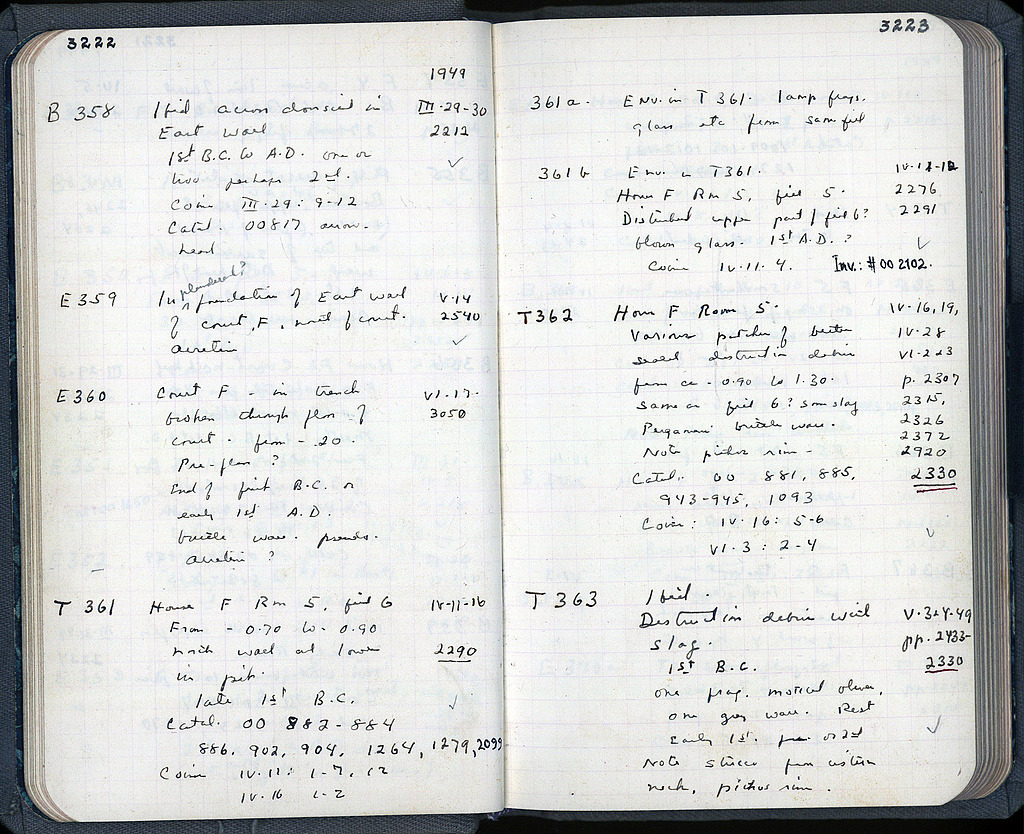 3222
1949
B 358 1 fill across donsied in III-29-30
East wall 2212
1st B.C. to A.D. one or
two perhaps 2nd.
Coin III-29: 9-12
Catal. 00817 arrow-
head
plundered?
E 359 In foundation of East wall V-14
of court, F, north of court. 2540
Arretine
E 360 Court F - in trench VI-17-
broken through floor of 3050
court - from - .20
Pre-floor?
End of first B.C. or
early 1st A.D.
brittle ware. pseudo-
Arretine?
T 361 House F Rm 5, fill 6 IV-11-16
From - 0.70 to - 0.90
north wall at lower 2290
in pit.
late 1st B.C.
Catal. 00 882-884
886, 902, 904, 1264, 1279, 2099
Coin IV-11: 1-7, 12
IV-16 1-2
3223
361 a. Env. in T 361. lamp frags.
glass etc from same fill
361 b Env. T361. IV-11-12
House F Rm 5, fill 5. 2276
Disturbed upper part of fill 6? 2291
blown glass. 1st A.D.?
Coin IV-11-4. Inv.: #00 2102.
T362 House F Room 5. IV-16, 19,
Various patches of better IV-28
sealed destruction debris VI-2 & 3
from ca - 0.90 to 1.30. p. 2307
Same as fill 6? some slag 2315,
Pergamene brittle ware. 2326
2372
Note pithos rim - 2920
Catal. 00 881, 885, 2330
943-945, 1093
Coin: IV-16: 5-6
VI-3: 2-4
T 363 1 fill.
Destruction debris with V-3&4-49
slag. pp. 2433-
1st B.C. 2330
one frag.
one gray ware. Rest
early 1st. or 2nd
Note stucco from cistern
neck, pithos rim.